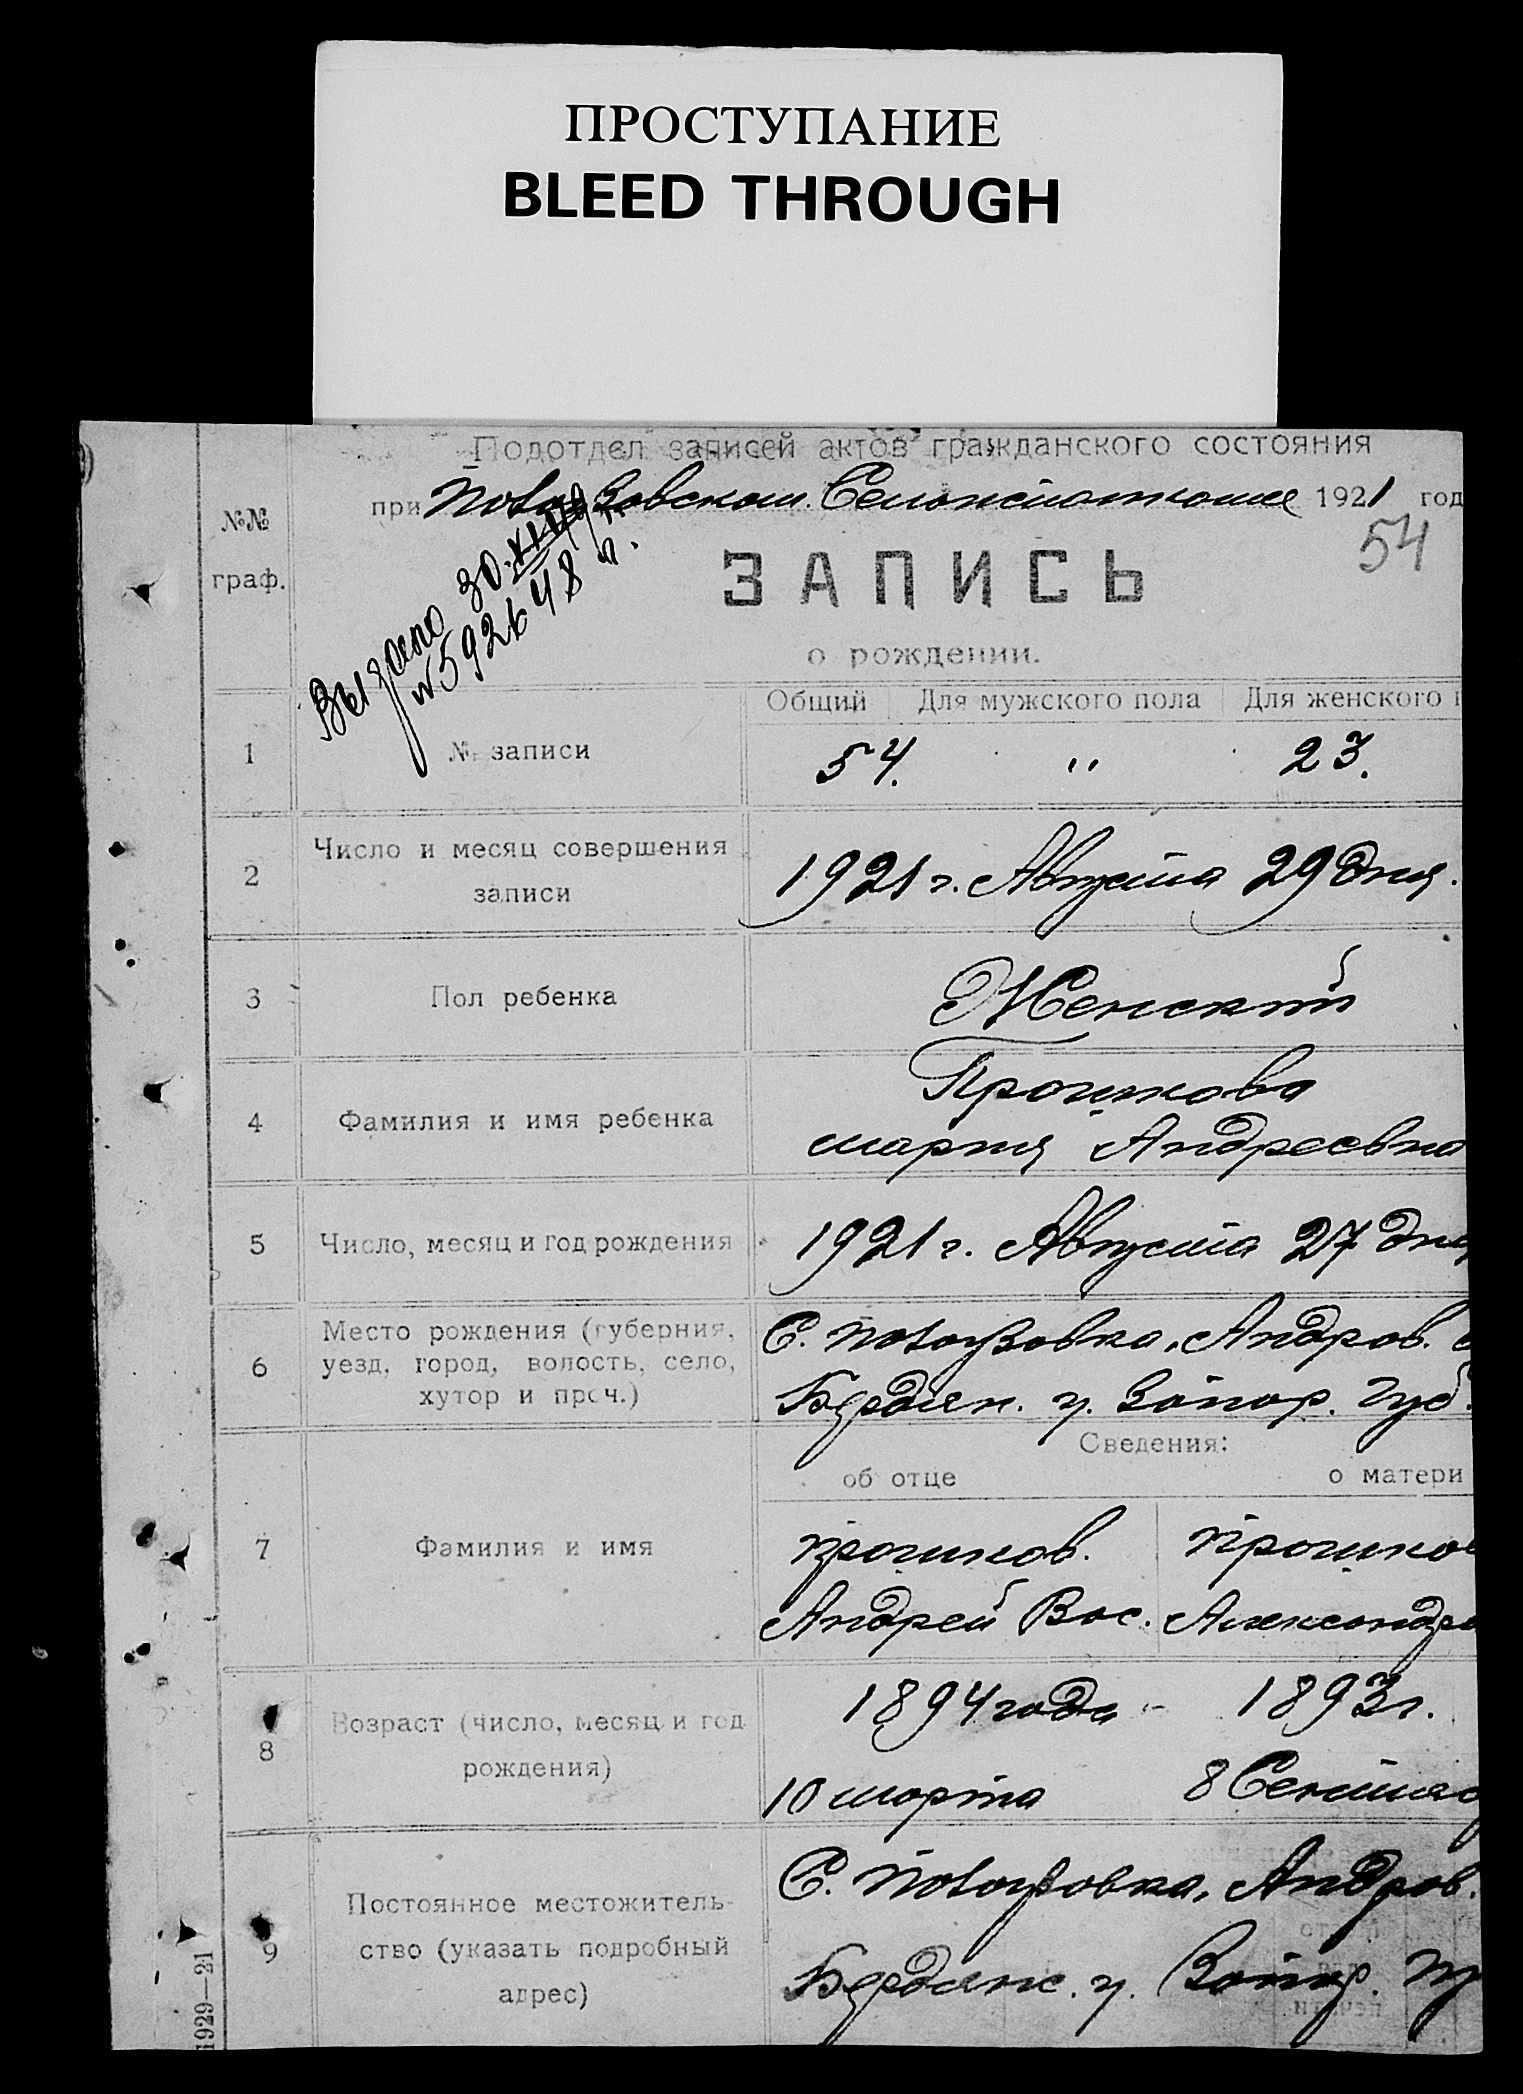 ПРОСТУПАНИЕ
BLEED THROUGH
Подотдел записей актов гражданского состояния
при 1921 год
№№
граф.
54
ЗАПИСЬ
о рождении.
Выдано 30.
Общий Для мужского пола Для женского
1 № записи 54. " 23.
2 Число и месяц совершения
записи
1921 г. Августа 29 дня.
3 Пол ребенка Женский
4 Фамилия и имя ребенка
Прошкова
Мария Андреевна
5 Число, месяц и год рождения 1921 г. Августа 27 дня
6 Место рождения (губерния,
уезд, город, волость, село,
хутор и проч.)
С. Андров.
Бердян. у. Запор. Губ.
Сведения:
об отце о матери
7 Фамилия и имя
Прошков. Прошков
Андрей Вас. Александра
8 Возраст (число, месяц и год
рождения)
1894 года - 1893 г.
10 марта 8 Сентяб
9 Постоянное местожитель-
ство (указать подробный
адрес)
С. Андров.
Бердянс. у.
1929—21